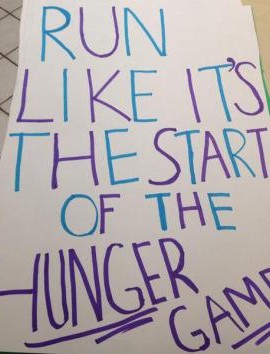 RUN
LIKE IT'S
THE START
OF THE
HUNGER
GAME